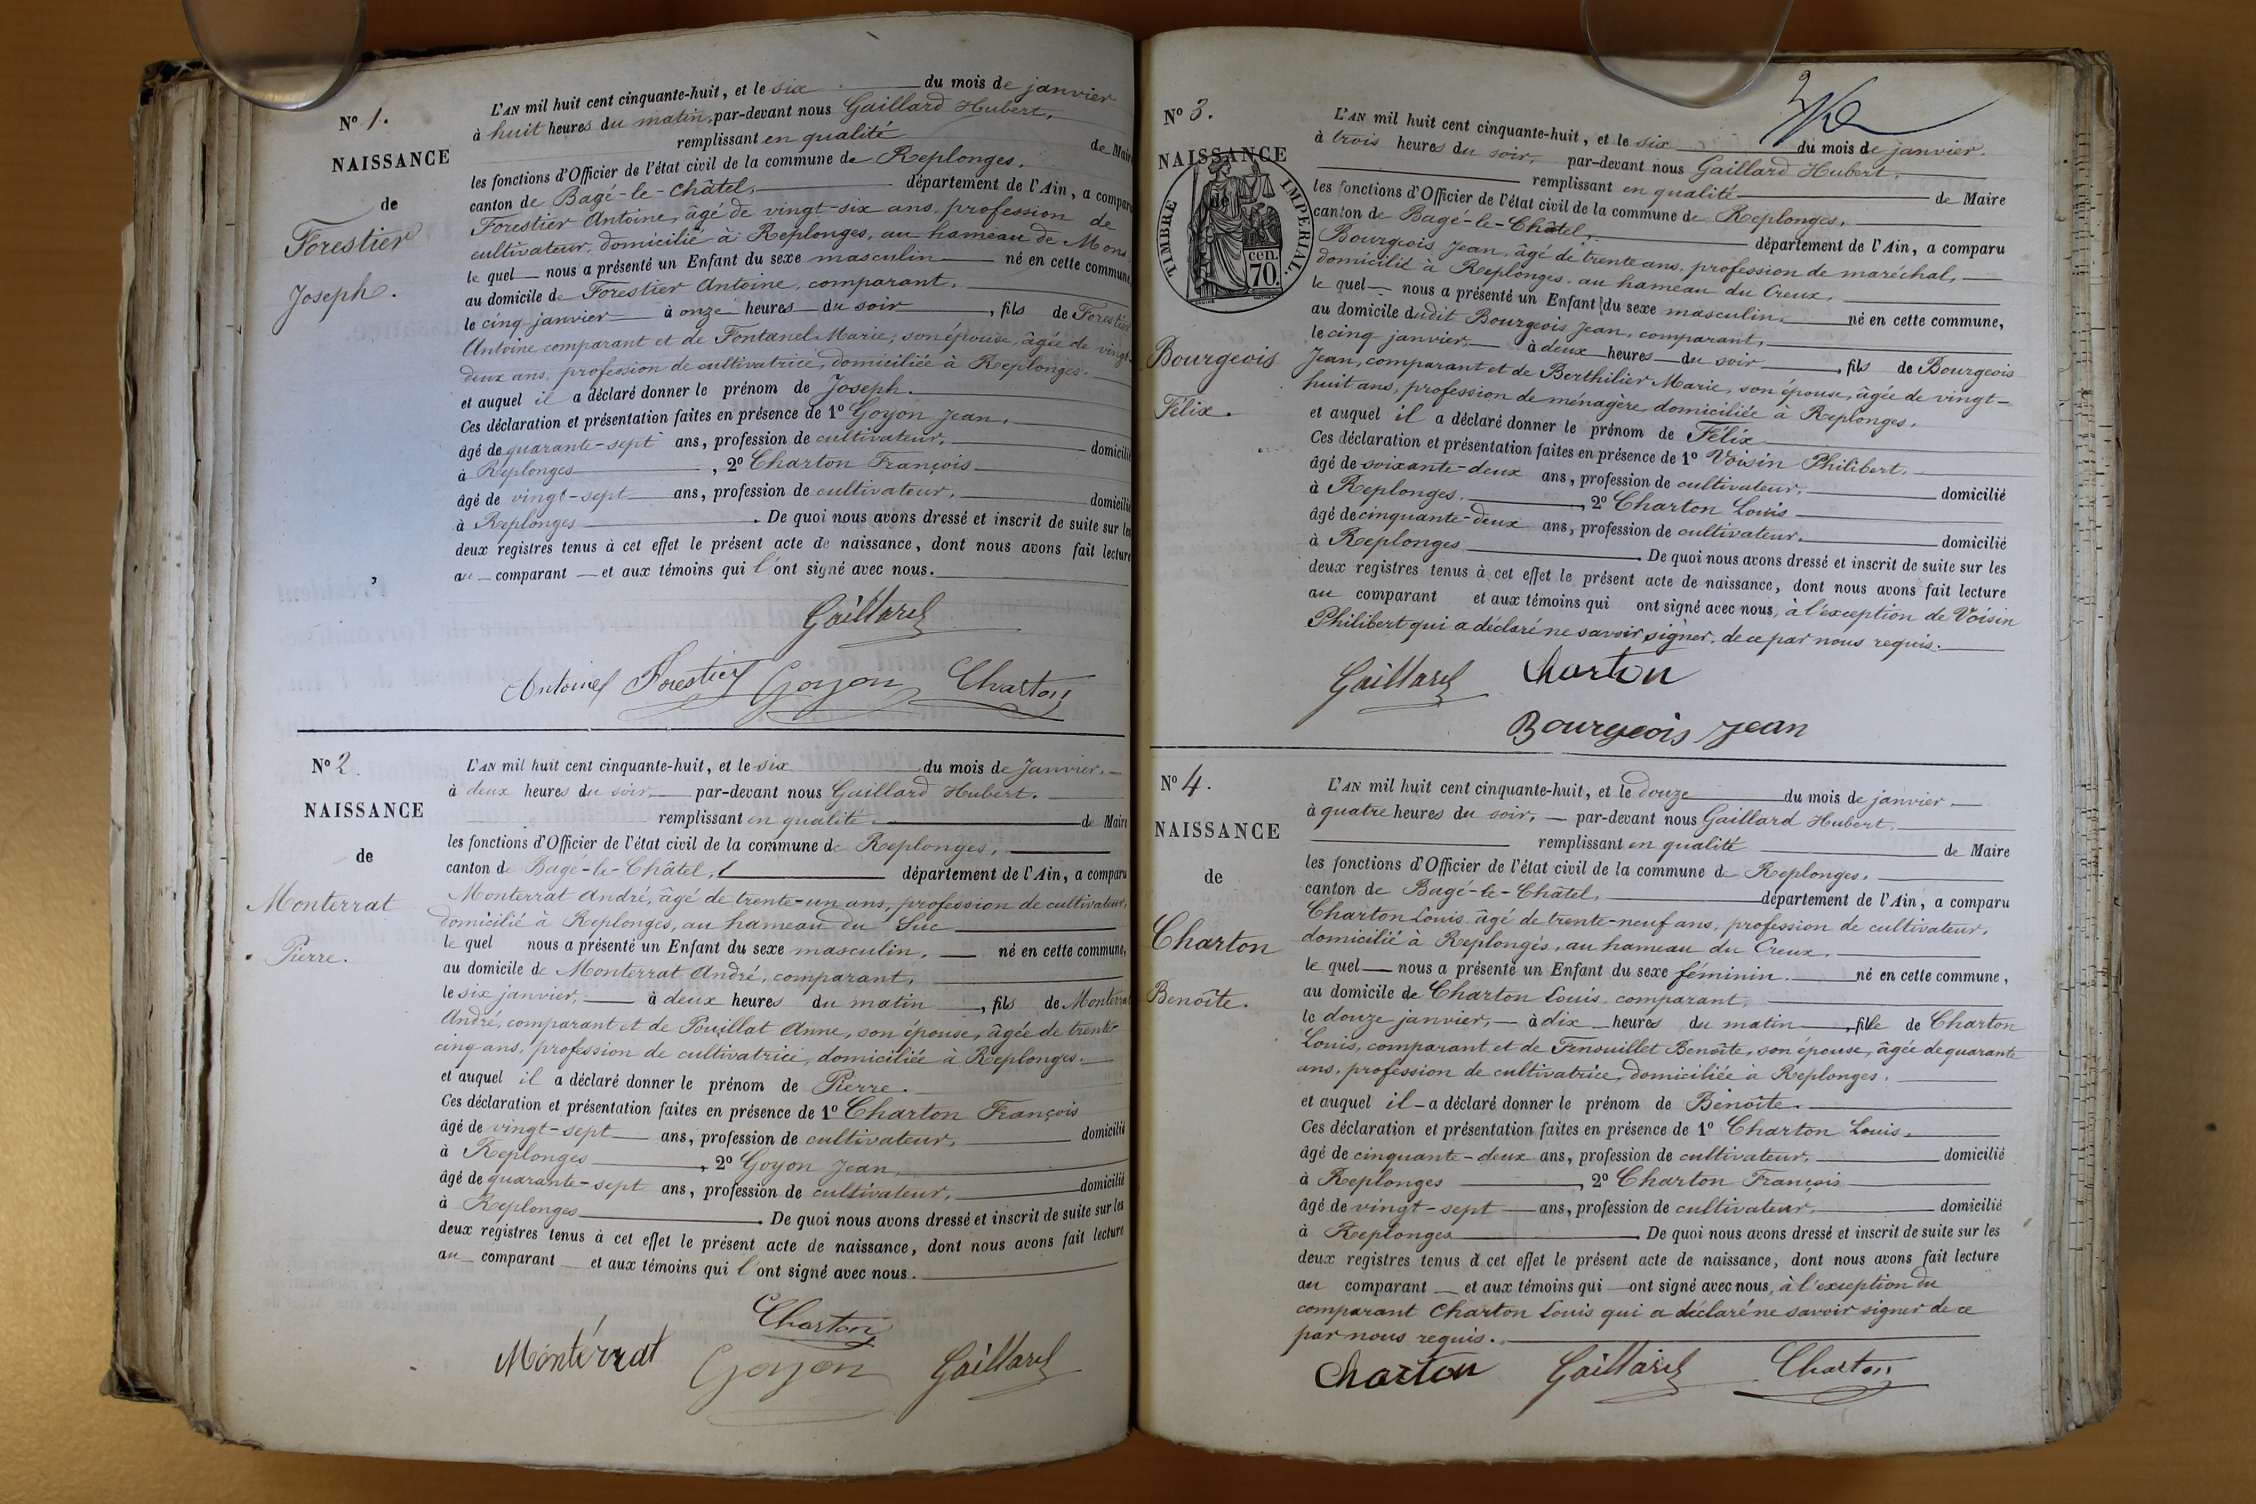 N° 1.
NAISSANCE
de
Forestier
Joseph.
L'AN mil huit cent cinquante-huit, et le six du mois de janvier
à huit heures du matin, par-devant nous Gaillard Hubert,
remplissant en qualité de Maire
les fonctions d'Officier de l'état civil de la commune de Replonges,
canton de Bagé-le-Châtel, département de l'Ain, a comparu
Forestier Antoine, âgé de vingt-six ans, profession de
cultivateur, domicilié à Replonges, au hameau de Mons
le quel nous a présenté un Enfant du sexe masculin né en cette commune,
au domicile de Forestier Antoine, comparant,
le cinq janvier à onze heures du soir, fils de Forestier
Antoine comparant et de Fontanel Marie, son épouse, âgée de vingt-
deux ans, profession de cultivatrice, domiciliée à Replonges.
et auquel il a déclaré donner le prénom de Joseph.
Ces déclaration et présentation faites en présence de 1° Goyon Jean,
âgé de quarante-sept ans, profession de cultivateur, domicilié
à Replonges, 2° Charton François
âgé de vingt-sept ans, profession de cultivateur, domicilié
à Replonges. De quoi nous avons dressé et inscrit de suite sur les
deux registres tenus à cet effet le présent acte de naissance, dont nous avons fait lecture
au comparant et aux témoins qui l'ont signé avec nous.
Gaillard
Antoine Forestier Goyon Charton
N° 2.
NAISSANCE
de
Monterrat
Pierre.
L'AN mil huit cent cinquante-huit, et le six du mois de Janvier.
à deux heures du soir par-devant nous Gaillard Hubert.
remplissant en qualité de Maire
les fonctions d'Officier de l'état civil de la commune de Replonges,
canton de Bagé-le-Châtel, département de l'Ain, a comparu
Monterrat André, âgé de trente-un ans, profession de cultivateur,
domicilié à Replonges, au hameau du Suc
le quel nous a présenté un Enfant du sexe masculin, né en cette commune,
au domicile de Monterrat André, comparant,
le six janvier, à deux heures du matin, fils de Monterrat
André, comparant et de Pouillat Anne, son épouse, âgée de trente-
cinq ans, profession de cultivatrice, domiciliée à Replonges.
et auquel il a déclaré donner le prénom de Pierre.
Ces déclaration et présentation faites en présence de 1° Charton François
âgé de vingt-sept ans, profession de cultivateur, domicilié
à Replonges, 2° Goyon Jean
âgé de quarante-sept ans, profession de cultivateur, domicilié
à Replonges. De quoi nous avons dressé et inscrit de suite sur les
deux registres tenus à cet effet le présent acte de naissance, dont nous avons fait lecture
au comparant et aux témoins qui l'ont signé avec nous.
Charton
Montérrat Goyon Gaillard
N° 3.
NAISSANCE
de
TIMBRE IMPERIAL.
70 cen.
Bourgeois
Félix.
L'AN mil huit cent cinquante-huit, et le six du mois de janvier.
à trois heures du soir, par-devant nous Gaillard Hubert,
remplissant en qualité de Maire
les fonctions d'Officier de l'état civil de la commune de Replonges,
canton de Bagé-le-Châtel, département de l'Ain, a comparu
Bourgeois Jean, âgé de trente ans, profession de maréchal,
domicilié à Replonges, au hameau du Creux,
le quel nous a présenté un Enfant du sexe masculin, né en cette commune,
au domicile dudit Bourgeois Jean, comparant,
le cinq janvier, à deux heures du soir, fils de Bourgeois
Jean, comparant et de Berthilier Marie, son épouse, âgée de vingt-
huit ans, profession de ménagère, domiciliée à Replonges.
et auquel il a déclaré donner le prénom de Félix
Ces déclaration et présentation faites en présence de 1° Voisin Philibert,
âgé de soixante-deux ans, profession de cultivateur, domicilié
à Replonges, 2° Charton Louis
âgé de cinquante-deux ans, profession de cultivateur, domicilié
à Replonges. De quoi nous avons dressé et inscrit de suite sur les
deux registres tenus à cet effet le présent acte de naissance, dont nous avons fait lecture
au comparant et aux témoins qui ont signé avec nous, à l'exception de Voisin
Philibert qui a déclaré ne savoir signer, de ce par nous requis.
Gaillard Charton
Bourgeois Jean
N° 4.
NAISSANCE
de
Charton
Benoîte.
L'AN mil huit cent cinquante-huit, et le douze du mois de janvier
à quatre heures du soir, par-devant nous Gaillard Hubert,
remplissant en qualité de Maire
les fonctions d'Officier de l'état civil de la commune de Replonges,
canton de Bagé-le-Châtel, département de l'Ain, a comparu
Charton Louis âgé de trente-neuf ans, profession de cultivateur,
domicilié à Replonges, au hameau du Creux,
le quel nous a présenté un Enfant du sexe féminin né en cette commune,
au domicile de Charton Louis, comparant,
le douze janvier, à dix heures du matin, fille de Charton
Louis, comparant et de Fenouillet Benoîte, son épouse, âgée de quarante
ans, profession de cultivatrice, domiciliée à Replonges.
et auquel il a déclaré donner le prénom de Benoîte.
Ces déclaration et présentation faites en présence de 1° Charton Louis,
âgé de cinquante-deux ans, profession de cultivateur, domicilié
à Replonges, 2° Charton François
âgé de vingt-sept ans, profession de cultivateur, domicilié
à Replonges. De quoi nous avons dressé et inscrit de suite sur les
deux registres tenus à cet effet le présent acte de naissance, dont nous avons fait lecture
au comparant et aux témoins qui ont signé avec nous, à l'exception du
comparant Charton Louis qui a déclaré ne savoir signer de ce
par nous requis.
Charton Gaillard Charton